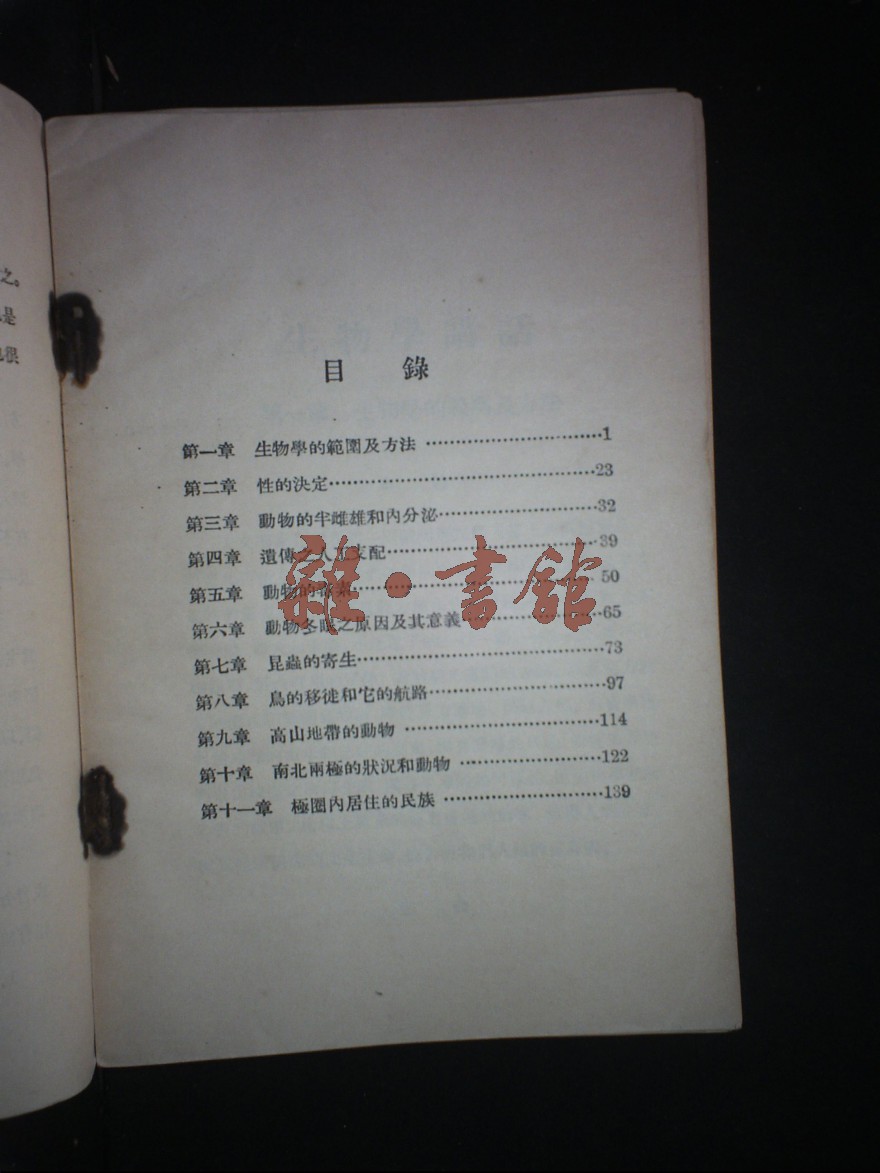 之。
是
很
目錄
第一章 生物學的範圍及方法…………………………1
第二章 性的決定……………………………………23
第三章 動物的半雌雄和內分泌……………………32
第四章 遺傳之人工支配……………………………39
第五章 動物的毒素…………………………………50
第六章 動物冬眠之原因及其意義…………………65
第七章 昆蟲的寄生…………………………………73
第八章 鳥的移徙和它的航路………………………97
第九章 高山地帶的動物……………………………114
第十章 南北兩極的狀況和動物……………………122
第十一章 極圈內居住的民族………………………139
雜·書館